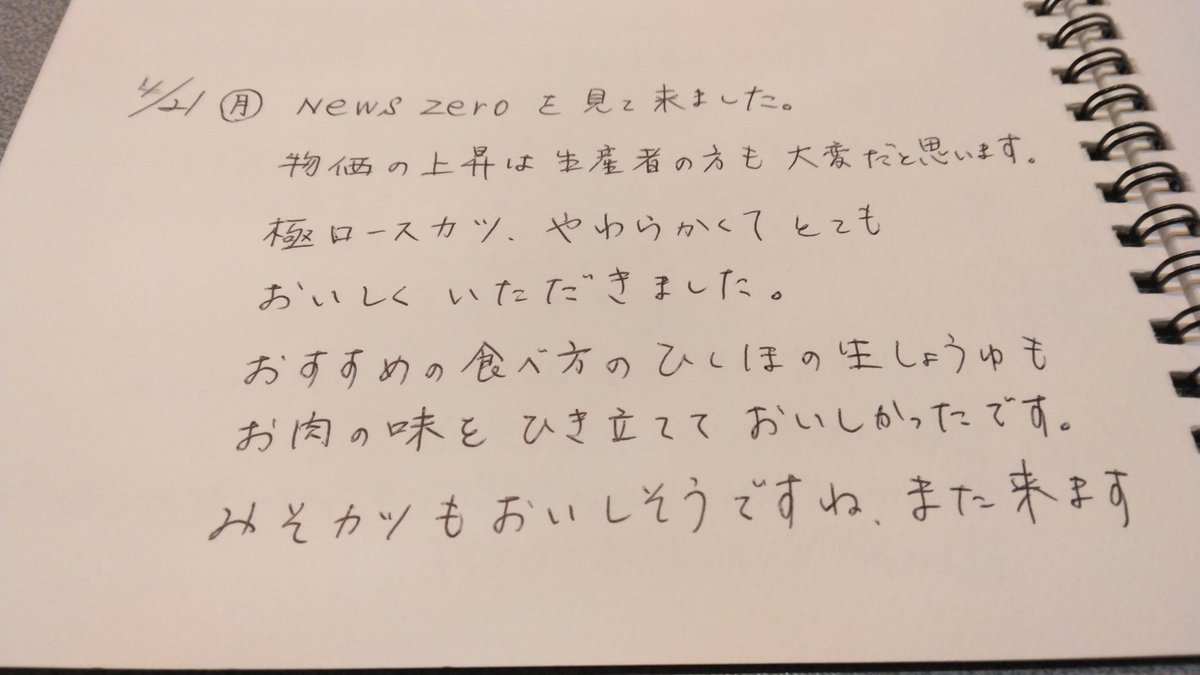 4/21 月 News zero を見て来ました。
物価の上昇は生産者の方も大変だと思います。
極ロースカツ、やわらかくてとても
おいしくいただきました。
おすすめの食べ方のひしほの生しょうゆも
お肉の味をひき立てておいしかったです。
みそカツもおいしそうですね、また来ます